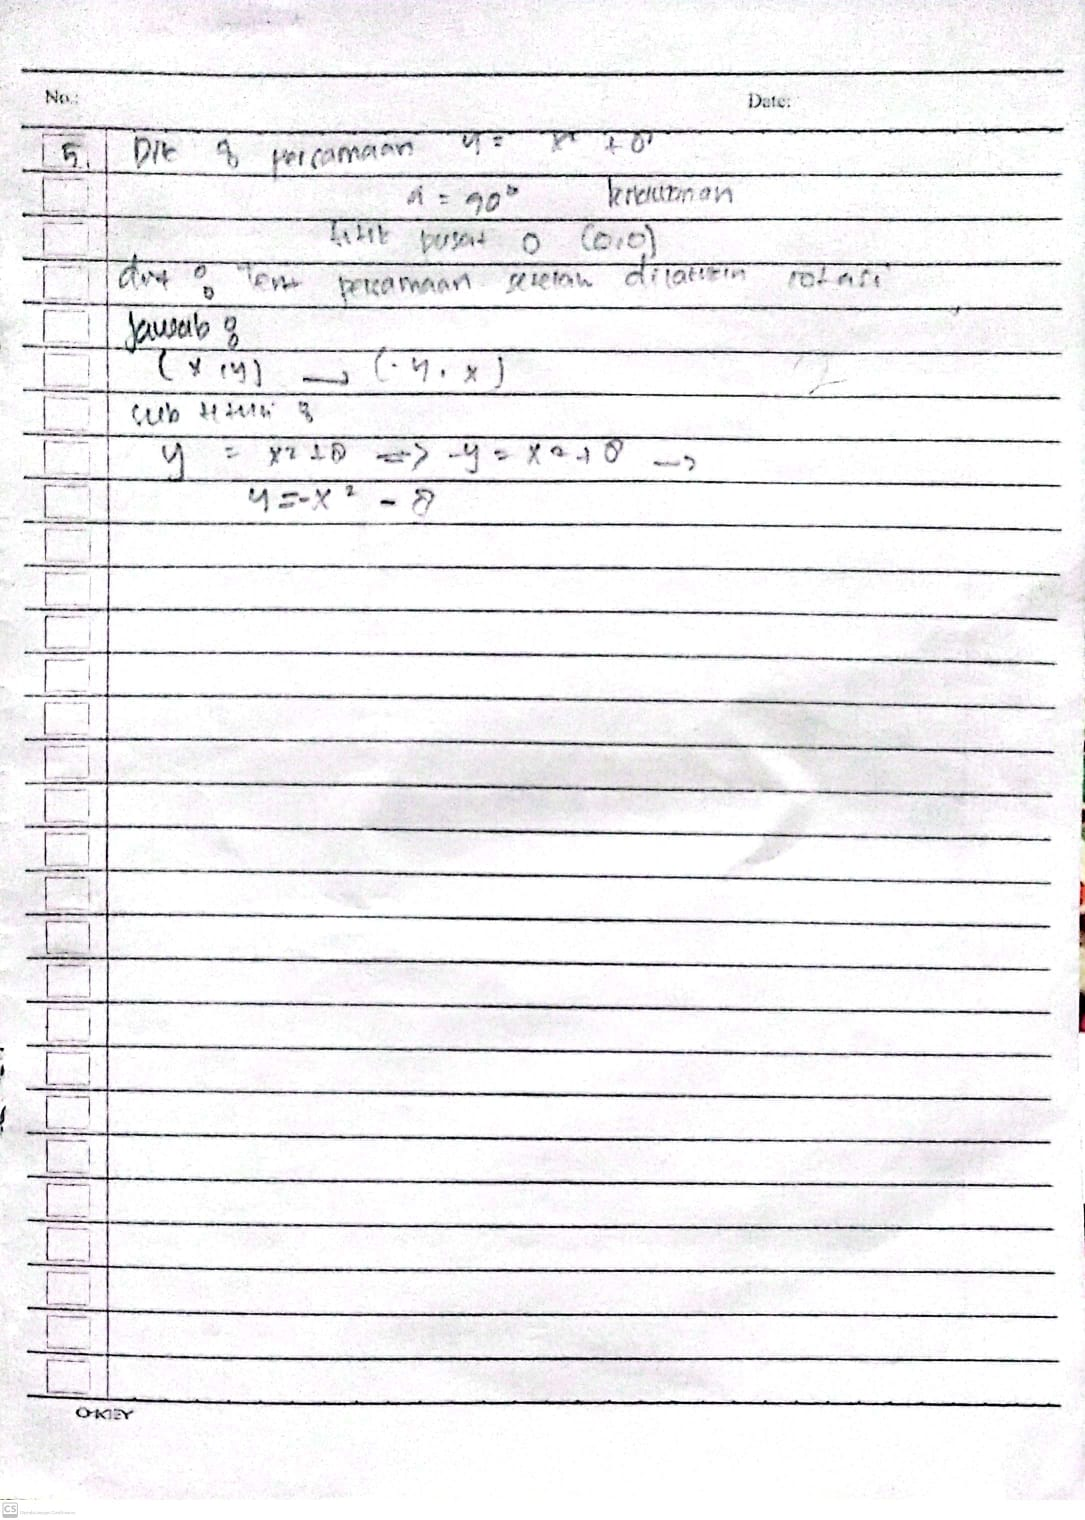 No.:
Date:
5. Dik : persamaan y = x² + 8
α = 90° kedudukan
titik pusat O (0,0)
dit : Tent persamaan setelah dilakukan rotasi
Jawab :
(x,y) → (-y, x)
sub titusi :
y = x2+8 => -y = x2+8 →
y = -x² - 8
OKEY
CS